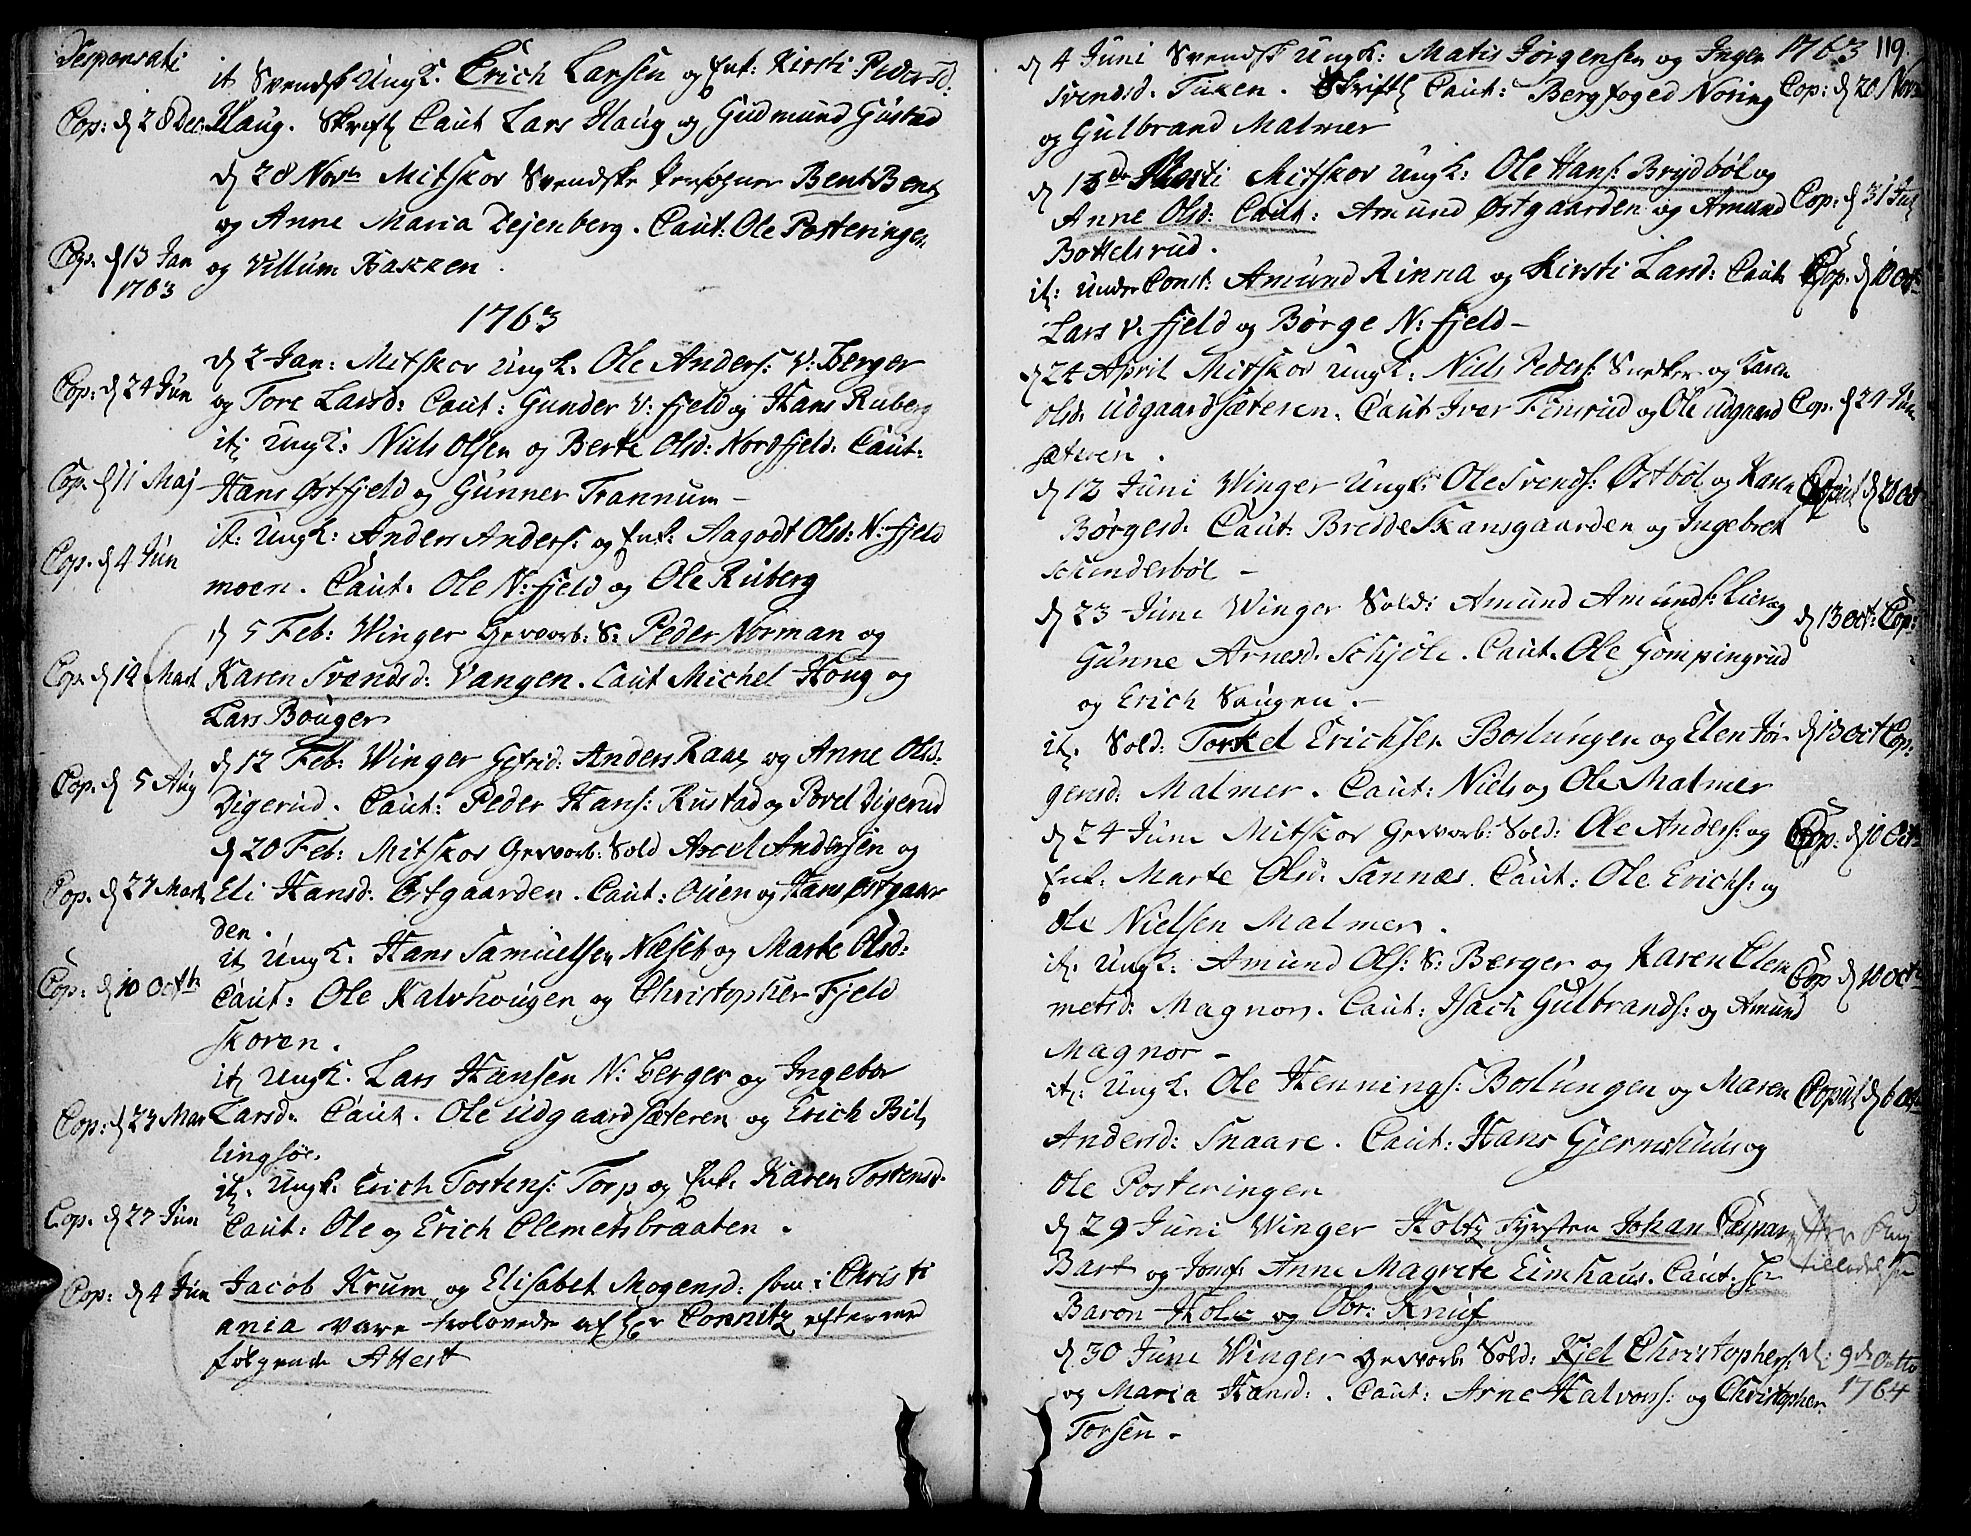 Desponsati
it Svendsk Ungk. Erich Larsen og Enk: Kirsti Pedersd:
Cop: d 28 Dec. Haug. Skriftl Caut Lars Haug og Gudmund Gustad
d 28 Novr Mitskov Svendske Personer Bent Bentz
og Anne Maria Zejenberg. Caut: Ole Posteringen
Cop. d 13 Jan 1763 og Villum Bakken.
1763
d 2 Jan: Mitskov Ungk. Ole Anders: V: Berger
Cop: d 24 Jun og Tore Larsd: Caut: Gunder V: fjeld og Hans Ruberg
it: Ungk: Niels Olsen og Berte Olsd: Nordfjeld: Caut:
Cop. d 11 Maj Hans Østfjeld og Gunner Trannum -
it: Ungk: Anders Anders: og Enk: Aagodt Olsd: N: fjeld
Cop. d 4 Jun moen. Caut. Ole N: fjeld og Ole Ruberg
d 5 Feb: Winger Gevorb: S: Peder Norman og
Cop. d 19 Mart Karen Svendsd: Vangen. Caut Michel Houg og
Lars Bouger
d 12 Feb: Winger Gefrid: Anders Raae og Anne Olsd:
Cop. d 5 Aug Digerud. Caut: Peder Hans: Rustad og Povel Digerud
d 20 Feb: Mitskov Gevorb: Sold Axcel Andersen og
Cop. d 27 Mart Eli Hansd: Østgaarden. Caut: Ouen og Hans Østgaar
den.
it Ungk. Hans Samuelsen Næset og Marte Olsd:
Cop: d 10 Octbr Caut: Ole Kalvhougen og Christopher Fjeld
skoren.
it Ungk. Lars Hansen N: Berger og Ingebor
Cop: d 27 Mar Larsd. Caut. Ole Udgaardsæteren og Erich Bil
lingsøe.
it. Ungk: Erich Tostens: Torp og Enk: Karen Tostensd.
Cop. d 27 Jun Caut: Ole og Erich Clemetsbraaten.
Cop: d 4 Jun Jacob Krum og Elisabet Mogensd: som i Christi
ania vare trolovede af Hr Connitz efterned
følgende Attest
1763 119.
d 4 Juni Svendsk Ungk: Matis Jørgensen og Inger
Svendsd. Tuxen. Skriftl Caut: Bergfoged Noring Cop: d 20 Novr
og Gulbrand Malmer
d 13de Marti Mitskov Ungk: Ole Hans: Brydbøl og
Anne Olsd: Caut: Amund Østgaarden og Amund Cop: d 31 Jul
Bottelsrud.
it: Under Const: Amund Rinna og Kirsti Larsd: Caut Cop: d 10 Oct
Lars V. fjeld og Børge N: fjeld -
d 24 April Mitskov Ungk: Niels Peders: Snecker og Karen
Olsd: Udgaardsæteren. Caut Iver Finsrud og Ole Udgaard Cop. d 24 Jun
sæteren.
d 12 Juni Winger Ungk: Ole Svends: Østbøl og Karen Copul d 20 Oct
Børgesd: Caut: Bredde Skansgaarden og Ingebret
Scunderbøl -
d 23 Juni Winger Sold: Amund Amunds: Lier og d 13 Oct: Cop:
Gunne Arnesd. Schjøle. Caut. Ole Gompingrud
og Erich Saugen. -
it. Sold: Torkel Erichsen Boslungen og Elen Jør d 13 Oct Cop:
gensd: Malmer. Caut: Niels og Ole Malmer
d 24 Juni Mitskov Gevorb: Sold: Ole Anders: og Cop: d 10 Octr
Enk: Marte Olsd: Sannæs. Caut: Ole Erichs: og
Ole Nielsen Malmer.
it. Ungk: Amund Ols: S: Berger og Karen Clem Cop d 10 Octr
metsd: Magnor. Caut: Isach Gulbrands: og Amund
Magnor -
it: Ungk. Ole Hennings: Boslungen og Maren Copul d 6 Oct
Andersd: Snaare. Caut: Hans Gjermshuus og
Ole Posteringen
d 29 Juni Winger Holtz Fyrsten Johan Caspar
Bart og Jomf: Anne Magrete Eimhaus. Caut: Hr tilladelse
Baron Holc og Obr: Knuf
d 30 Juni Winger Gevorb Sold: Kjel Christophers: d: 9de Octo
og Maria Hansd: . Caut: Arne Halvors: og Christopher 1764
Torsen. -